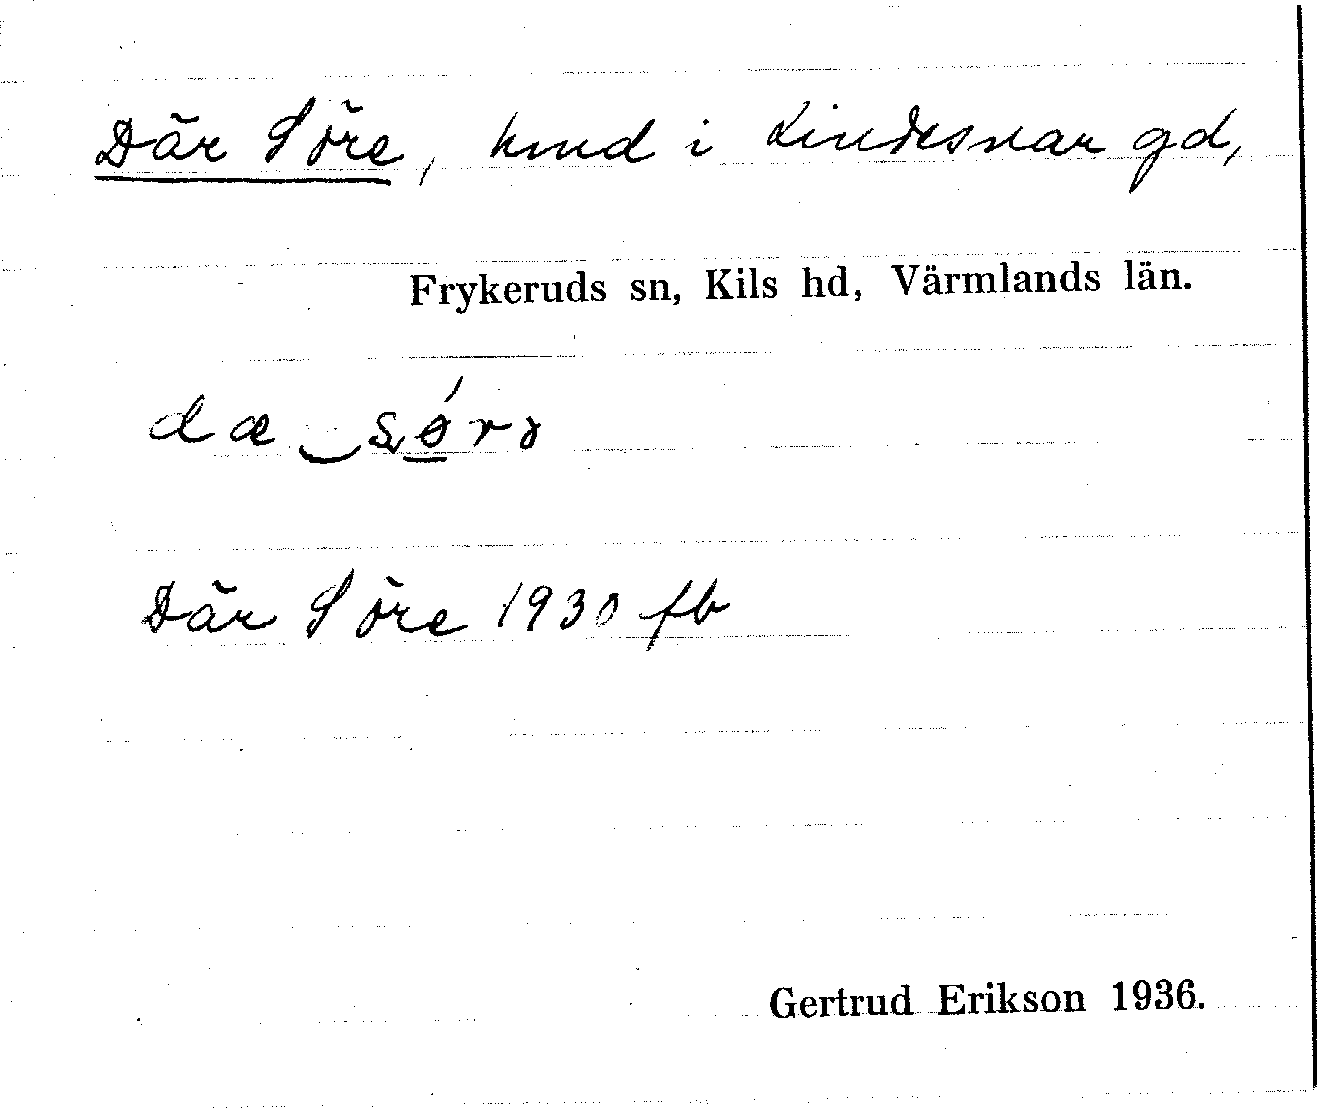 Där Söre, hmd i Lindesnar gd,
Frykeruds sn, Kils hd, Värmlands län.
dæ‿sǿrə
Där Söre 1930 fb
Gertrud Erikson 1936.